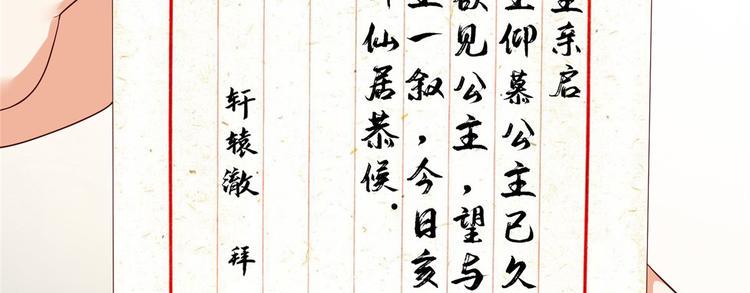 亲启
仰慕公主已久
欲见公主，望与
一叙，今日亥
仙居恭候.
轩辕澈 拜